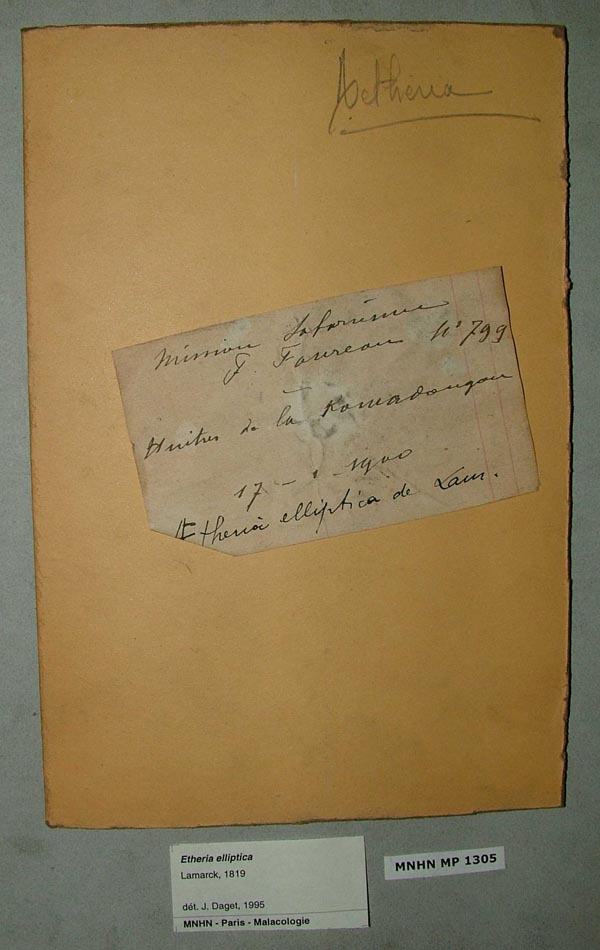 Aetheria
Mission Saharienne
F. Foureau N° 799
Huitres de la Komadougou
17 - 1 - 1900
Ætheria elliptica de Lam.
Etheria elliptica
Lamarck, 1819
dét. J. Daget, 1995
MNHN - Paris - Malacologie
MNHN MP 1305